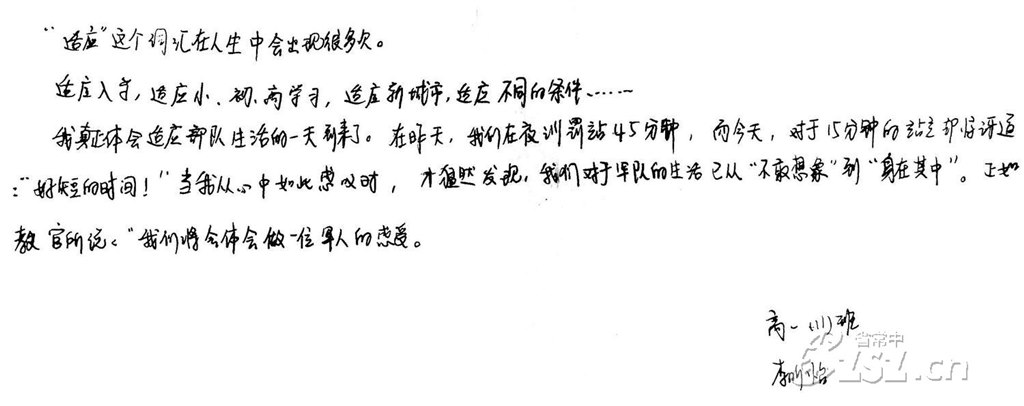 “适应”这个词汇在人生中会出现很多次。
适应入学，适应小、初、高学习，适应新城市，适应不同的条件……
我真正体会适应部队生活的一天到来了。在昨天，我们在夜训罚站45分钟，而今天，对于15分钟的站立却惊讶道
：“好短的时间！”当我从心中如此感叹时，才猛然发现，我们对于军队的生活已从“不敢想象”到“身在其中”。正如
教官所说：“我们将会体会做一位军人的感受。
高一（11）班
李
省常中
CSZ.cn